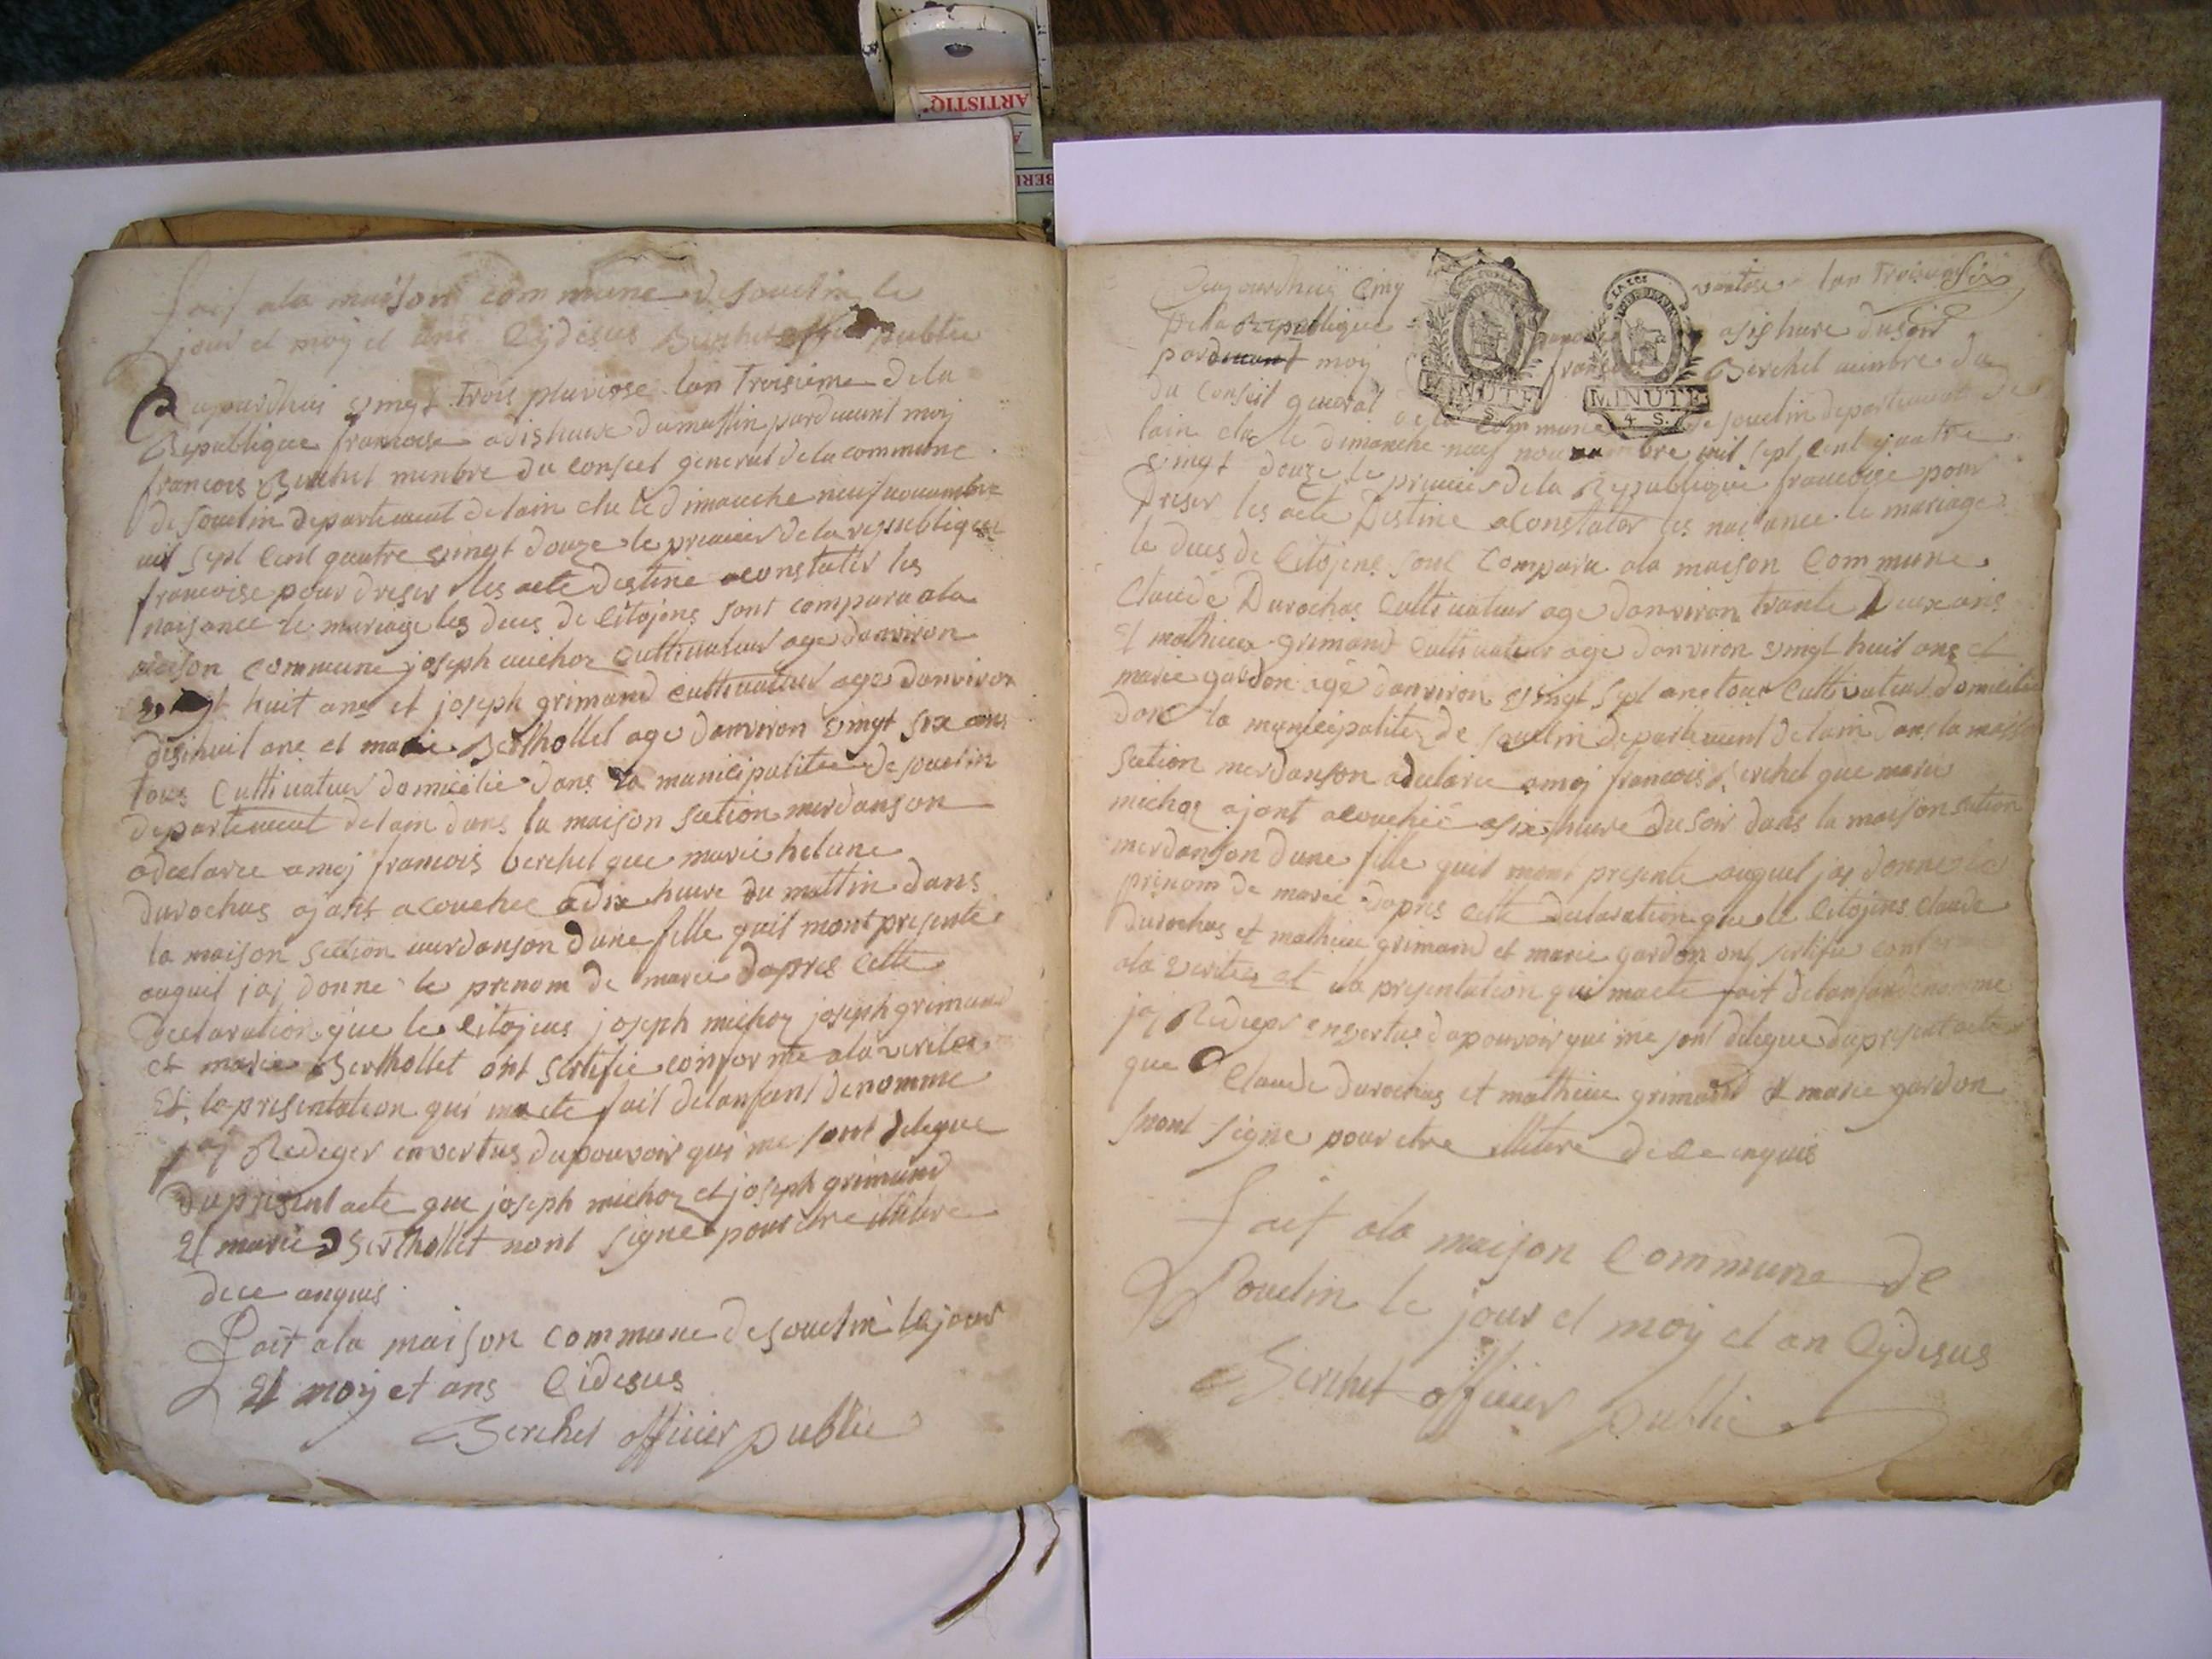 ARTISTIQ
BERI
fait ala maison commune de souclin le
jour et moy et ans Cydesus Berchet officier public
aujourdhuis vingt trois pluviose lan Troisieme dela
Republique francoise adishuire dumattin parduvent moy
francois Berchet menbre du conseil general dela commune
de souclin departement delain elu le dimanche neuf novambre
mil sept cent quatre vingt douze le premier dela republique
francoise pour dreser les acte destine aconstater les
naisance le mariage les deces de Citojens sont comparu ala
maison commune joseph michoz Cultivateur age danviron
vingt huit ans et joseph grimand cultivateur age danviron
disihuit ans et marie Berthollet age danviron vingt six ans
tous Cultivateur domicilie dans la municipalitee de souclin
departement delain dans la maison section merdanson
adeclaree amoj francois berchet que marie helane
durochas ajant acouchee adix huire du mattin dans
la maison section merdanson dune fille quil mont presente
auquil jaj donne le prenom de marie dapres cette
declaration que le Citojens joseph michoz joseph grimand
et marie Berthollet ont sertifie conforme ala veritee
Et lapresentation qui macte fait delanfant denomme
jaj Rediger envertus dupouvoir qui me sont delegue
dupresent acte que joseph michoz et joseph grimand
Et marie Berthollet nont signe pour etre illitere
dece anquis
Fait ala maison commune de souclin lejour
Et moy et ans Cidesus
Berchet officier public
Six
aujourdhuis Cinq vantose lan Troisieme
Dela Republique francoise asishure dusoir
parduvant moy francois Berchet menbre du
du Conseil general dela commune de souclin departement de
lain elu le dimanche neuf novambre mil sept cent quatre
vingt douze le premier dela Republique francoise pour
dreser les acte Destine aconstater les naisance le mariage
le deces de Citojens sont comparu ala maison Commune
Claude Durochas Cultivateur age danviron trante Deux ans
Et mathieu grimand Cultivateur age danviron vingt huit ans et
marie gardon age danviron vingt sept ans tous Cultivateur domicilie
dans la municipalitee de souclin departement delain dans la maison
section merdanson adelaree amoj francois Berchet que marie
michoz ajant acouchée asix huire dusoir dans la maison section
merdanson dune fille quil mont presente auquel jaj donne le
prenom de marie dapres cette declaration que le Citojens Claude
durochas et mathieu grimand et marie gardon ont sertifie
ala veritee et la presentation qui macte fait delanfant denomme
jaj Rediger envertus dupouvoir qui me sont delegue dupresent acte
que Claude durochas et mathieu grimand Et marie gardon
nont signe pour etre illitere dece enquis
fait ala maison Commune de
Souclin le jour et moy et an Cydesus
Berchet officier public
LA LOI
MINUTE
S.
LA LOI
MINUTE
4 S.